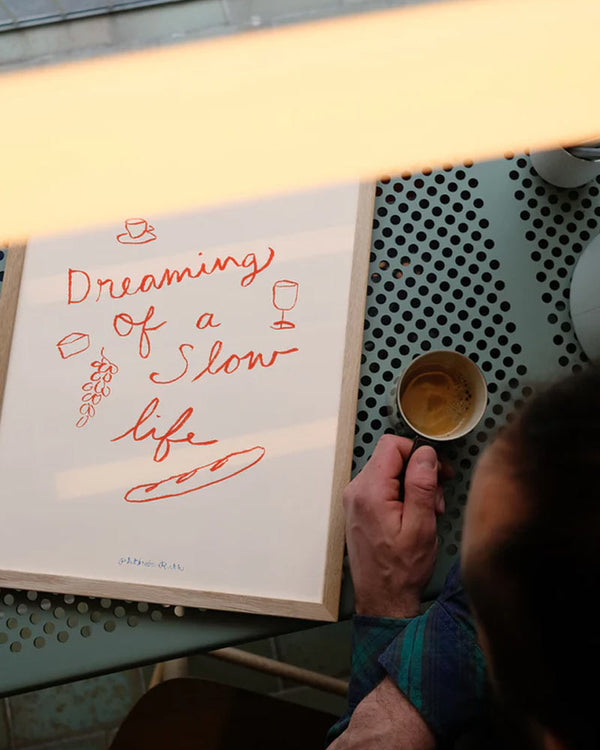 Dreaming
of a
Slow
life